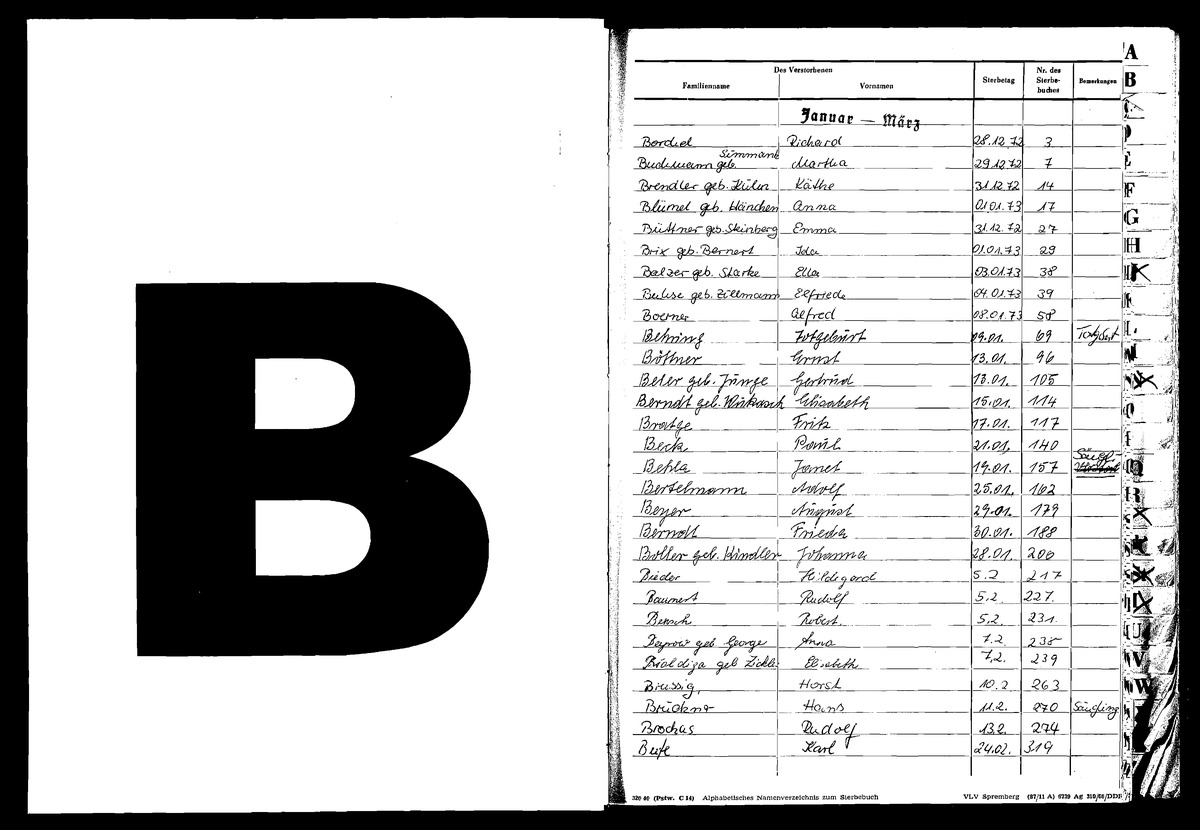 B
Des Verstorbenen
Familienname Vornamen Sterbetag Nr. des Sterbe-buches Bemerkungen
Januar — März
Richard 28.12.72 3
geb. Martha 29.12.72 7
Brendler geb. Kühn Käthe 31.12.72 14
Blümel geb. Hänchen Anna 01.01.73 17
Büttner geb. Steinberg Emma 31.12.72 27
Brix geb. Bernert Ida 01.01.73 29
Balzer geb. Starke Ella 03.01.73 38
geb. Zillmann Elfriede 04.01.73 39
Boerner Alfred 08.01.73 58
Behring Totgeburt 09.01. 69
Böttner Ernst 13.01. 96
geb. Junge Gertrud 13.01. 105
Berndt geb. Elisabeth 15.01. 114
Bratge Fritz 17.01. 117
Beck Paul 21.01. 140
Behla Janet 19.01. 157 Säugl.
Bertelmann Adolf 25.01. 162
Beyer August 29.01. 179
Berndt Frieda 30.01. 188
geb. Kindler Johanna 28.01. 206
Bieder Hildegard 5.2 217
Baumert Rudolf 5.2. 227.
Robert 5.2. 231.
geb. George Anna 7.2. 238
geb Elisabeth 7.2. 239
Brussig, Horst 10.2 263
Brückner Hans 11.2. 270 Säugling
Brochas Rudolf 13.2. 274
Karl 24.02. 319
(Pstw. C 14) Alphabetisches Namenverzeichnis zum Sterbebuch VLV Spremberg
A
B
E
F
G
H
U
V
W